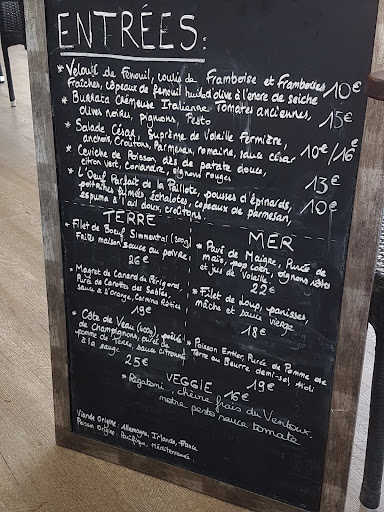 ENTRÉES:
* Velouté de Fenouil, coulis de Framboise et Framboises
Fraîches, copeaux de fenouil huile d'olive à l'encre de seiche 10€
* Burrata Crémeuse Italienne Tomates anciennes,
olives noires, pignons, Pesto 15€
* Salade César, Suprême de Volaille Fermière,
anchois, Croûtons, Parmesan, romaine, sauce césar 10€/16€
* Ceviche de Poisson dés de patate douce,
citron vert, Coriandre, oignons rouges 13€
* L'Oeuf Parfait de la Paillote, pousses d'épinards,
poitrines fumées, échalotes, copeaux de parmesan,
espuma à l'ail doux, croûtons. 10€
TERRE
* Filet de Boeuf Simmental (200g)
Frites maison sauce au poivre
26€
* Magret de Canard du Périgord,
Purée de Carottes des Sables,
sauce à l'Orange, Carmina Rôties
19€
* Côte de Veau (400g), poêlée
de champignons, purée de
pomme de Terre, sauce citronnée
à la sauge
25€
MER
* Pavé de Maigre, Purée de
maïs, pop corn, oignons rôtis
et jus de Volaille
22€
* Filet de Loup, panisses,
mâche et sauce vierge
18€
* Poisson Entier, Purée de Pomme de
Terre au Beurre demi-sel, Aioli
19€
VEGGIE 16€
* Rigatoni, chèvre frais du Ventoux,
notre pesto sauce tomate
Viande Origine: Allemagne, Irlande, France
Poisson Origine: Pacifique, Méditerranée